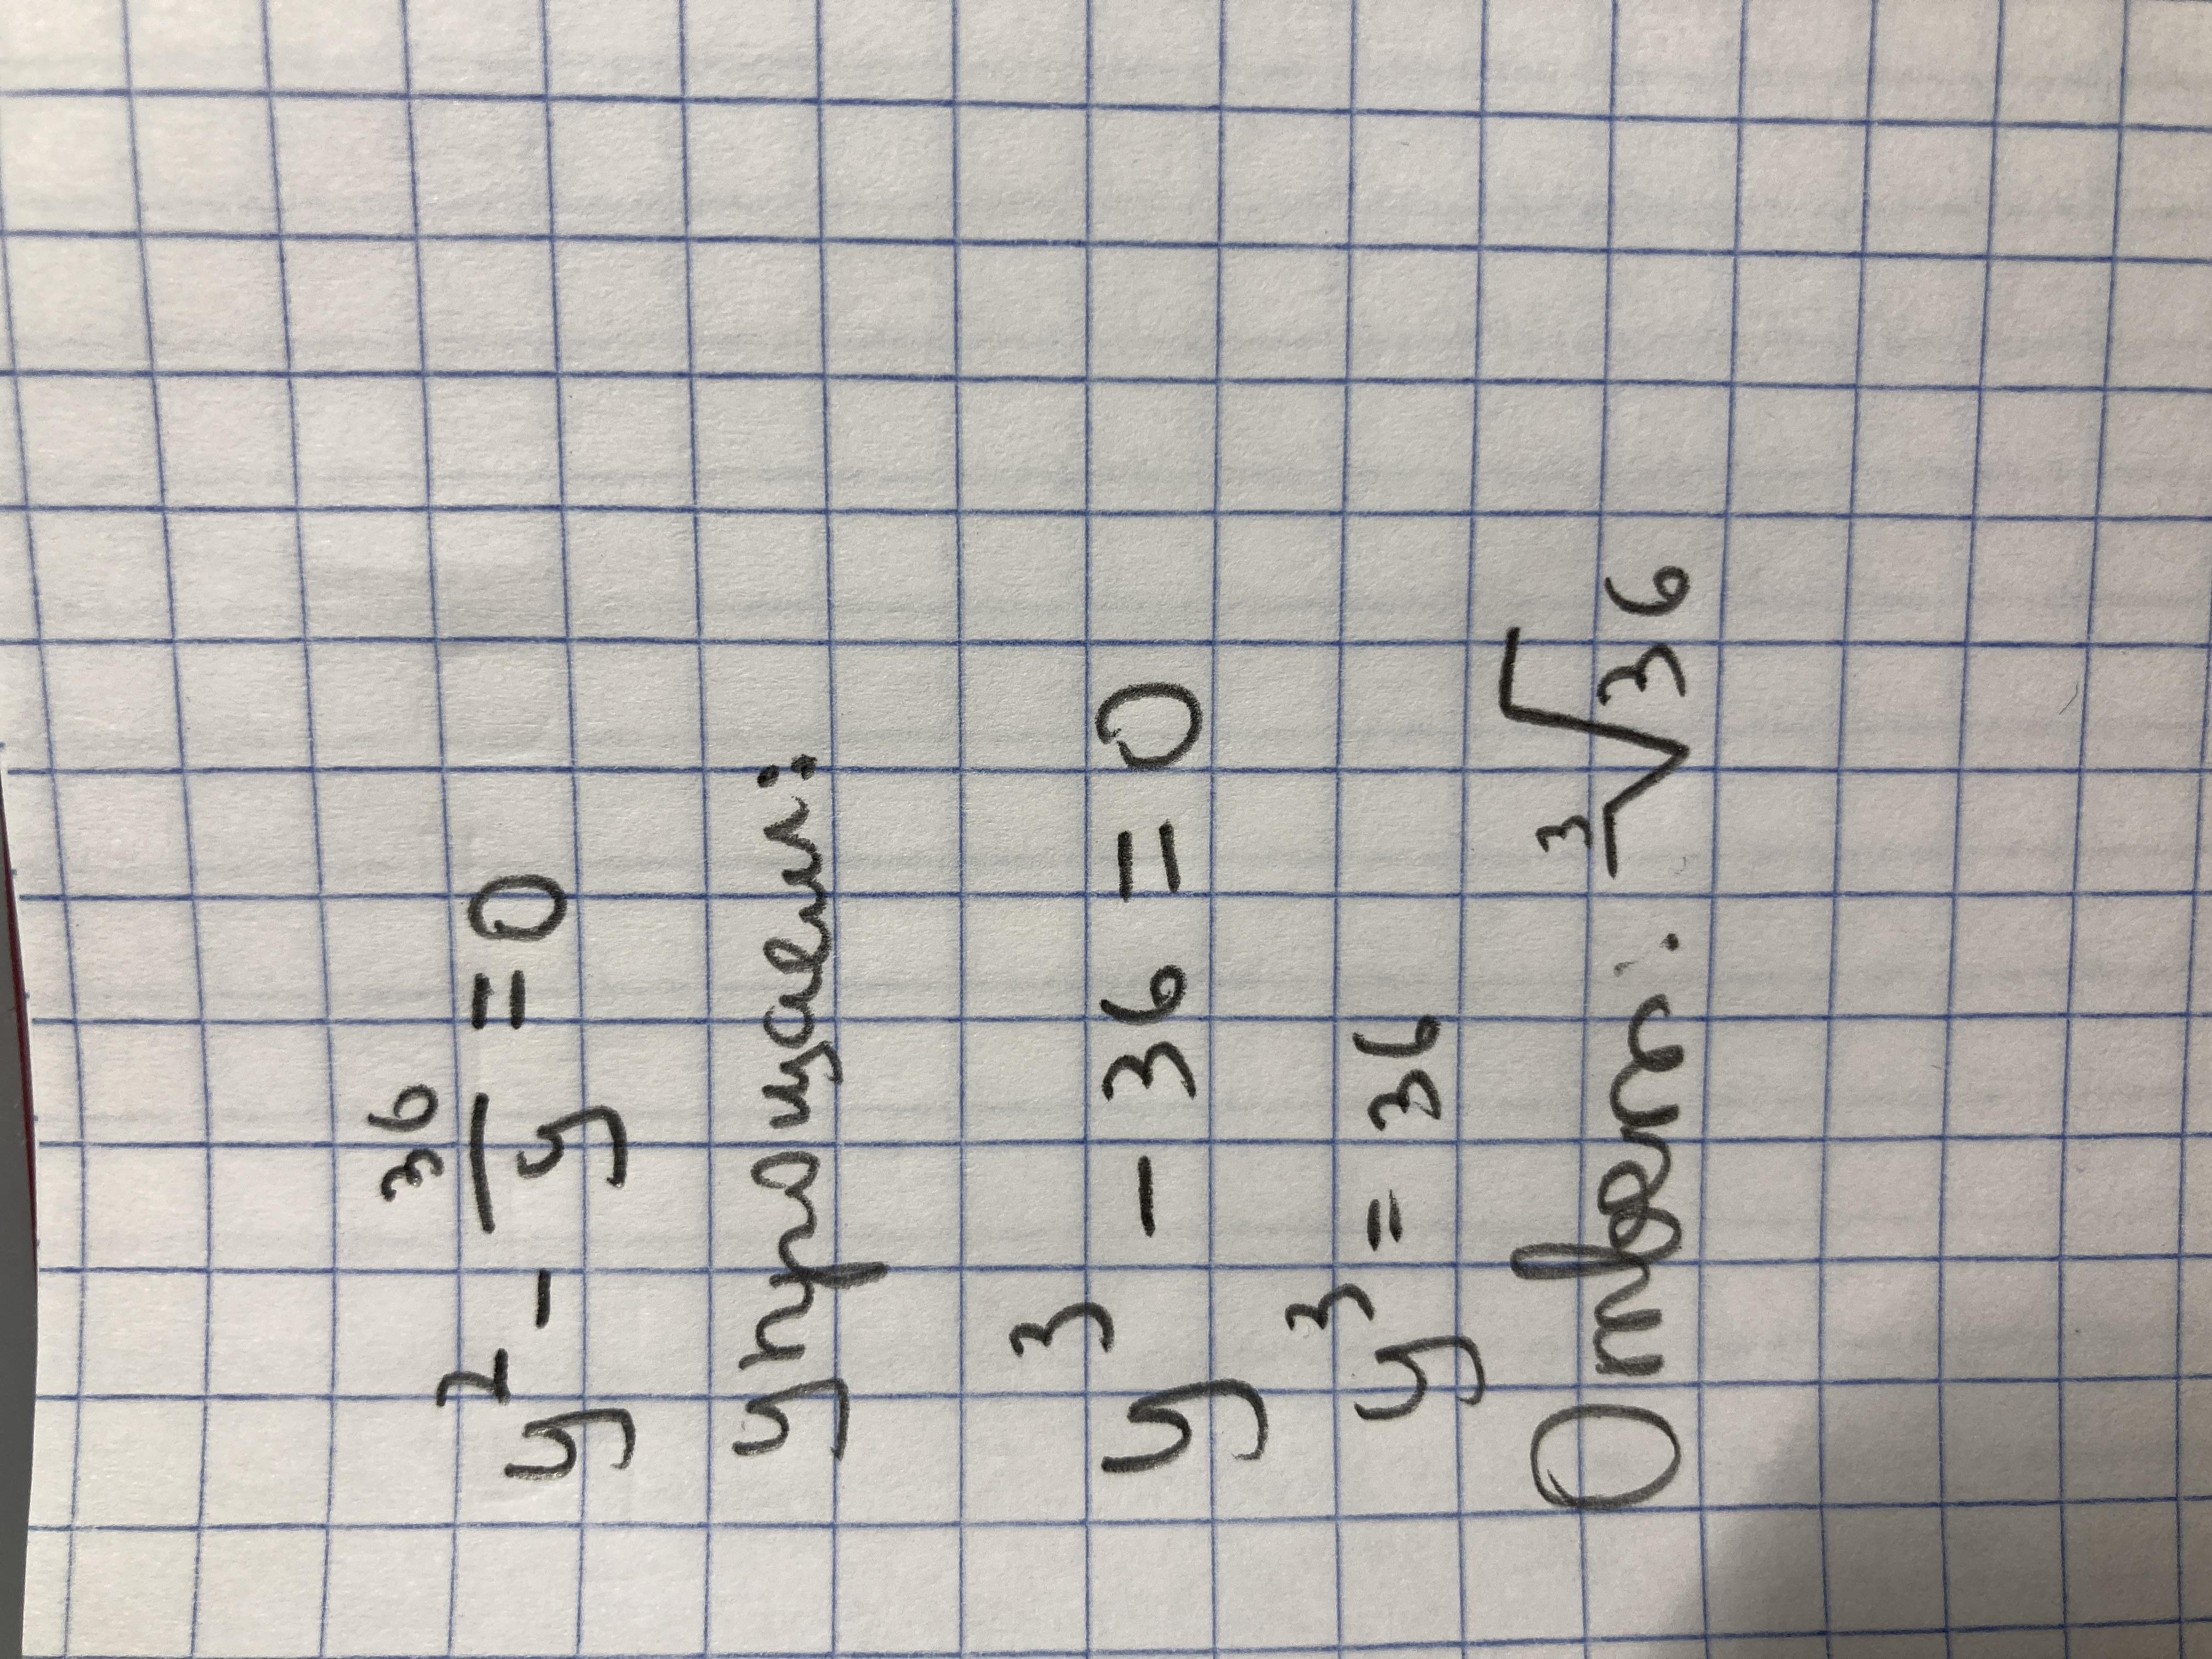 y² - 36/y = 0
упрощаем:
y³ - 36 = 0
y³ = 36
Ответ: ³√36